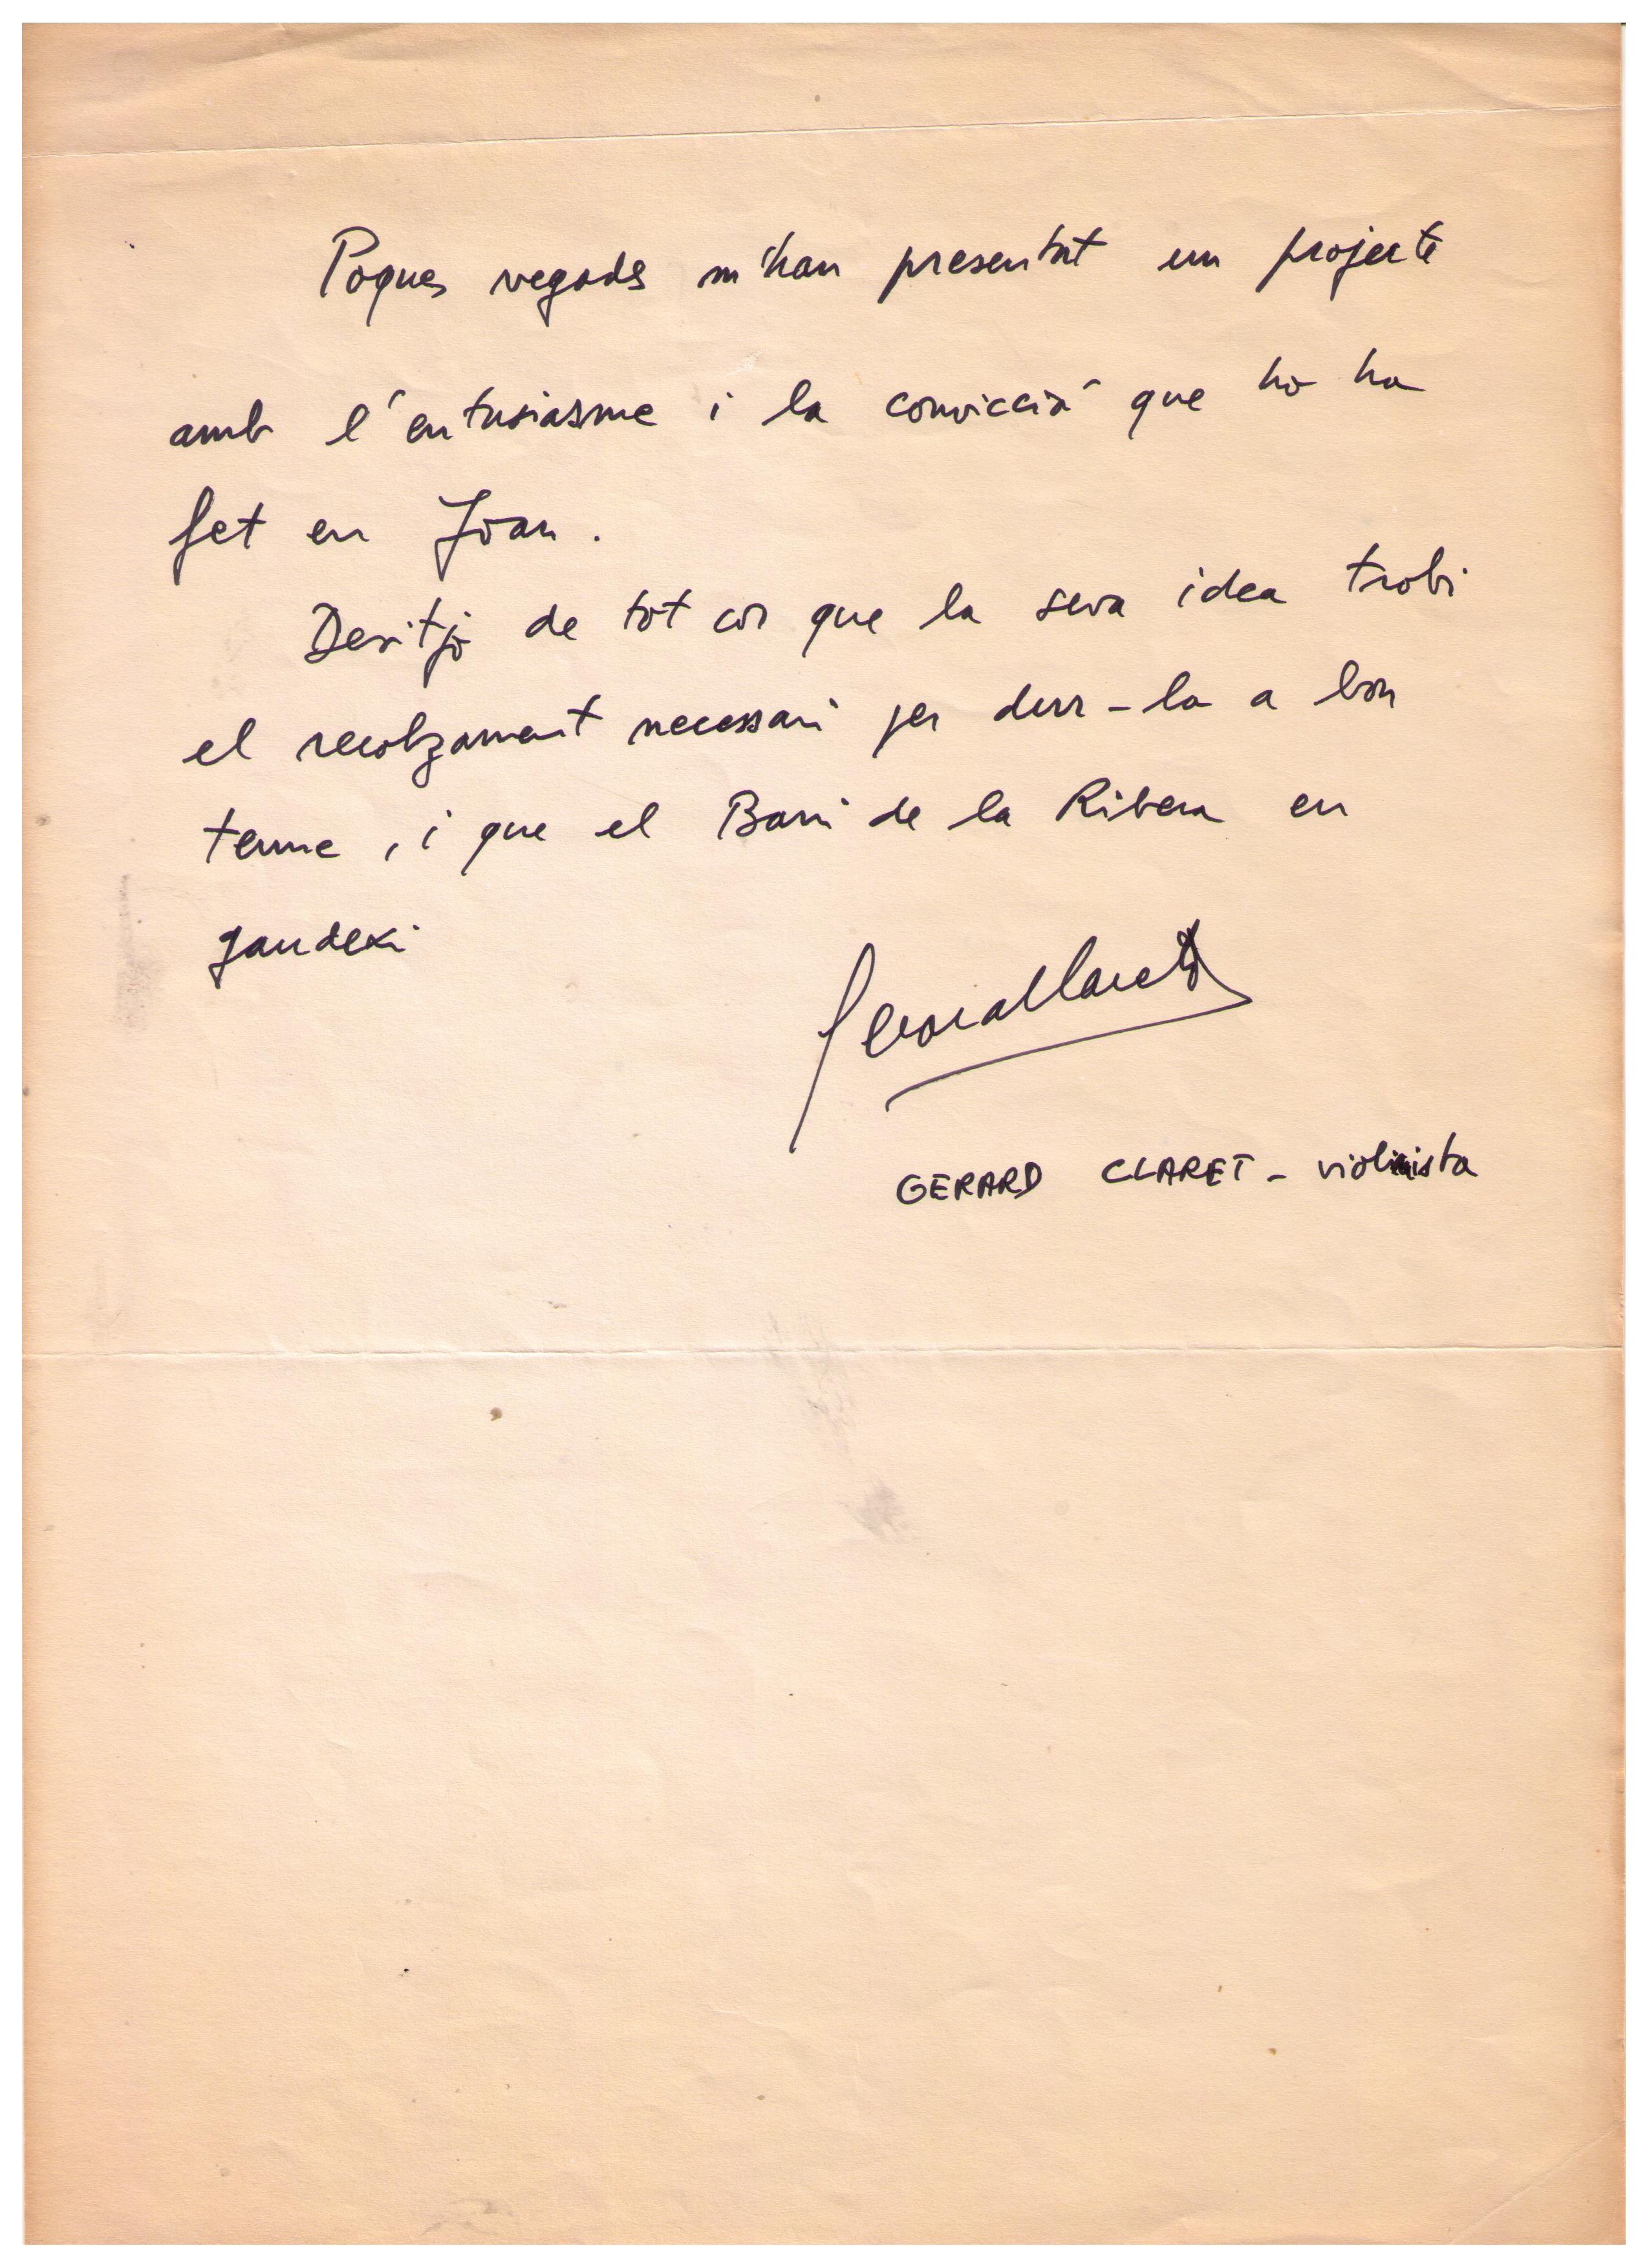 Poques vegades m'han presentat un projecte
amb l'entusiasme i la convicció que ho ha
fet en Joan.
Desitjo de tot cor que la seva idea trobi
el recolzament necessari per durr-la a bon
terme, i que el Barri de la Ribera en
gaudexi
Gerard Claret
GERARD CLARET - violinista